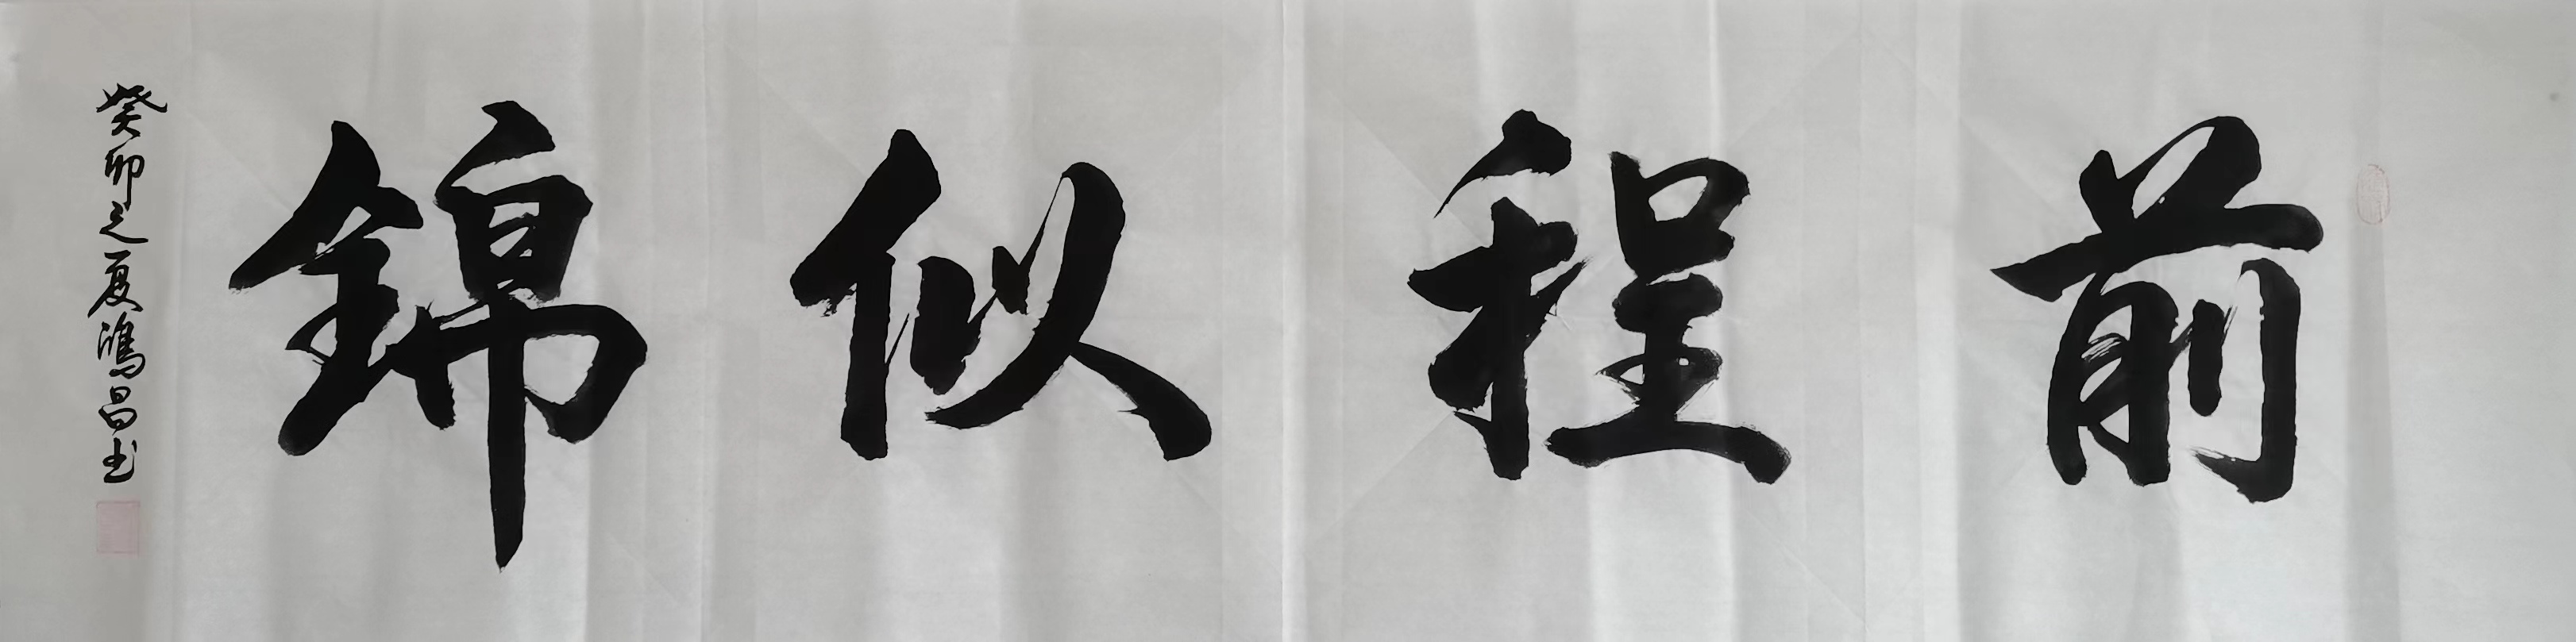 前程似錦
癸卯之夏鴻昌书